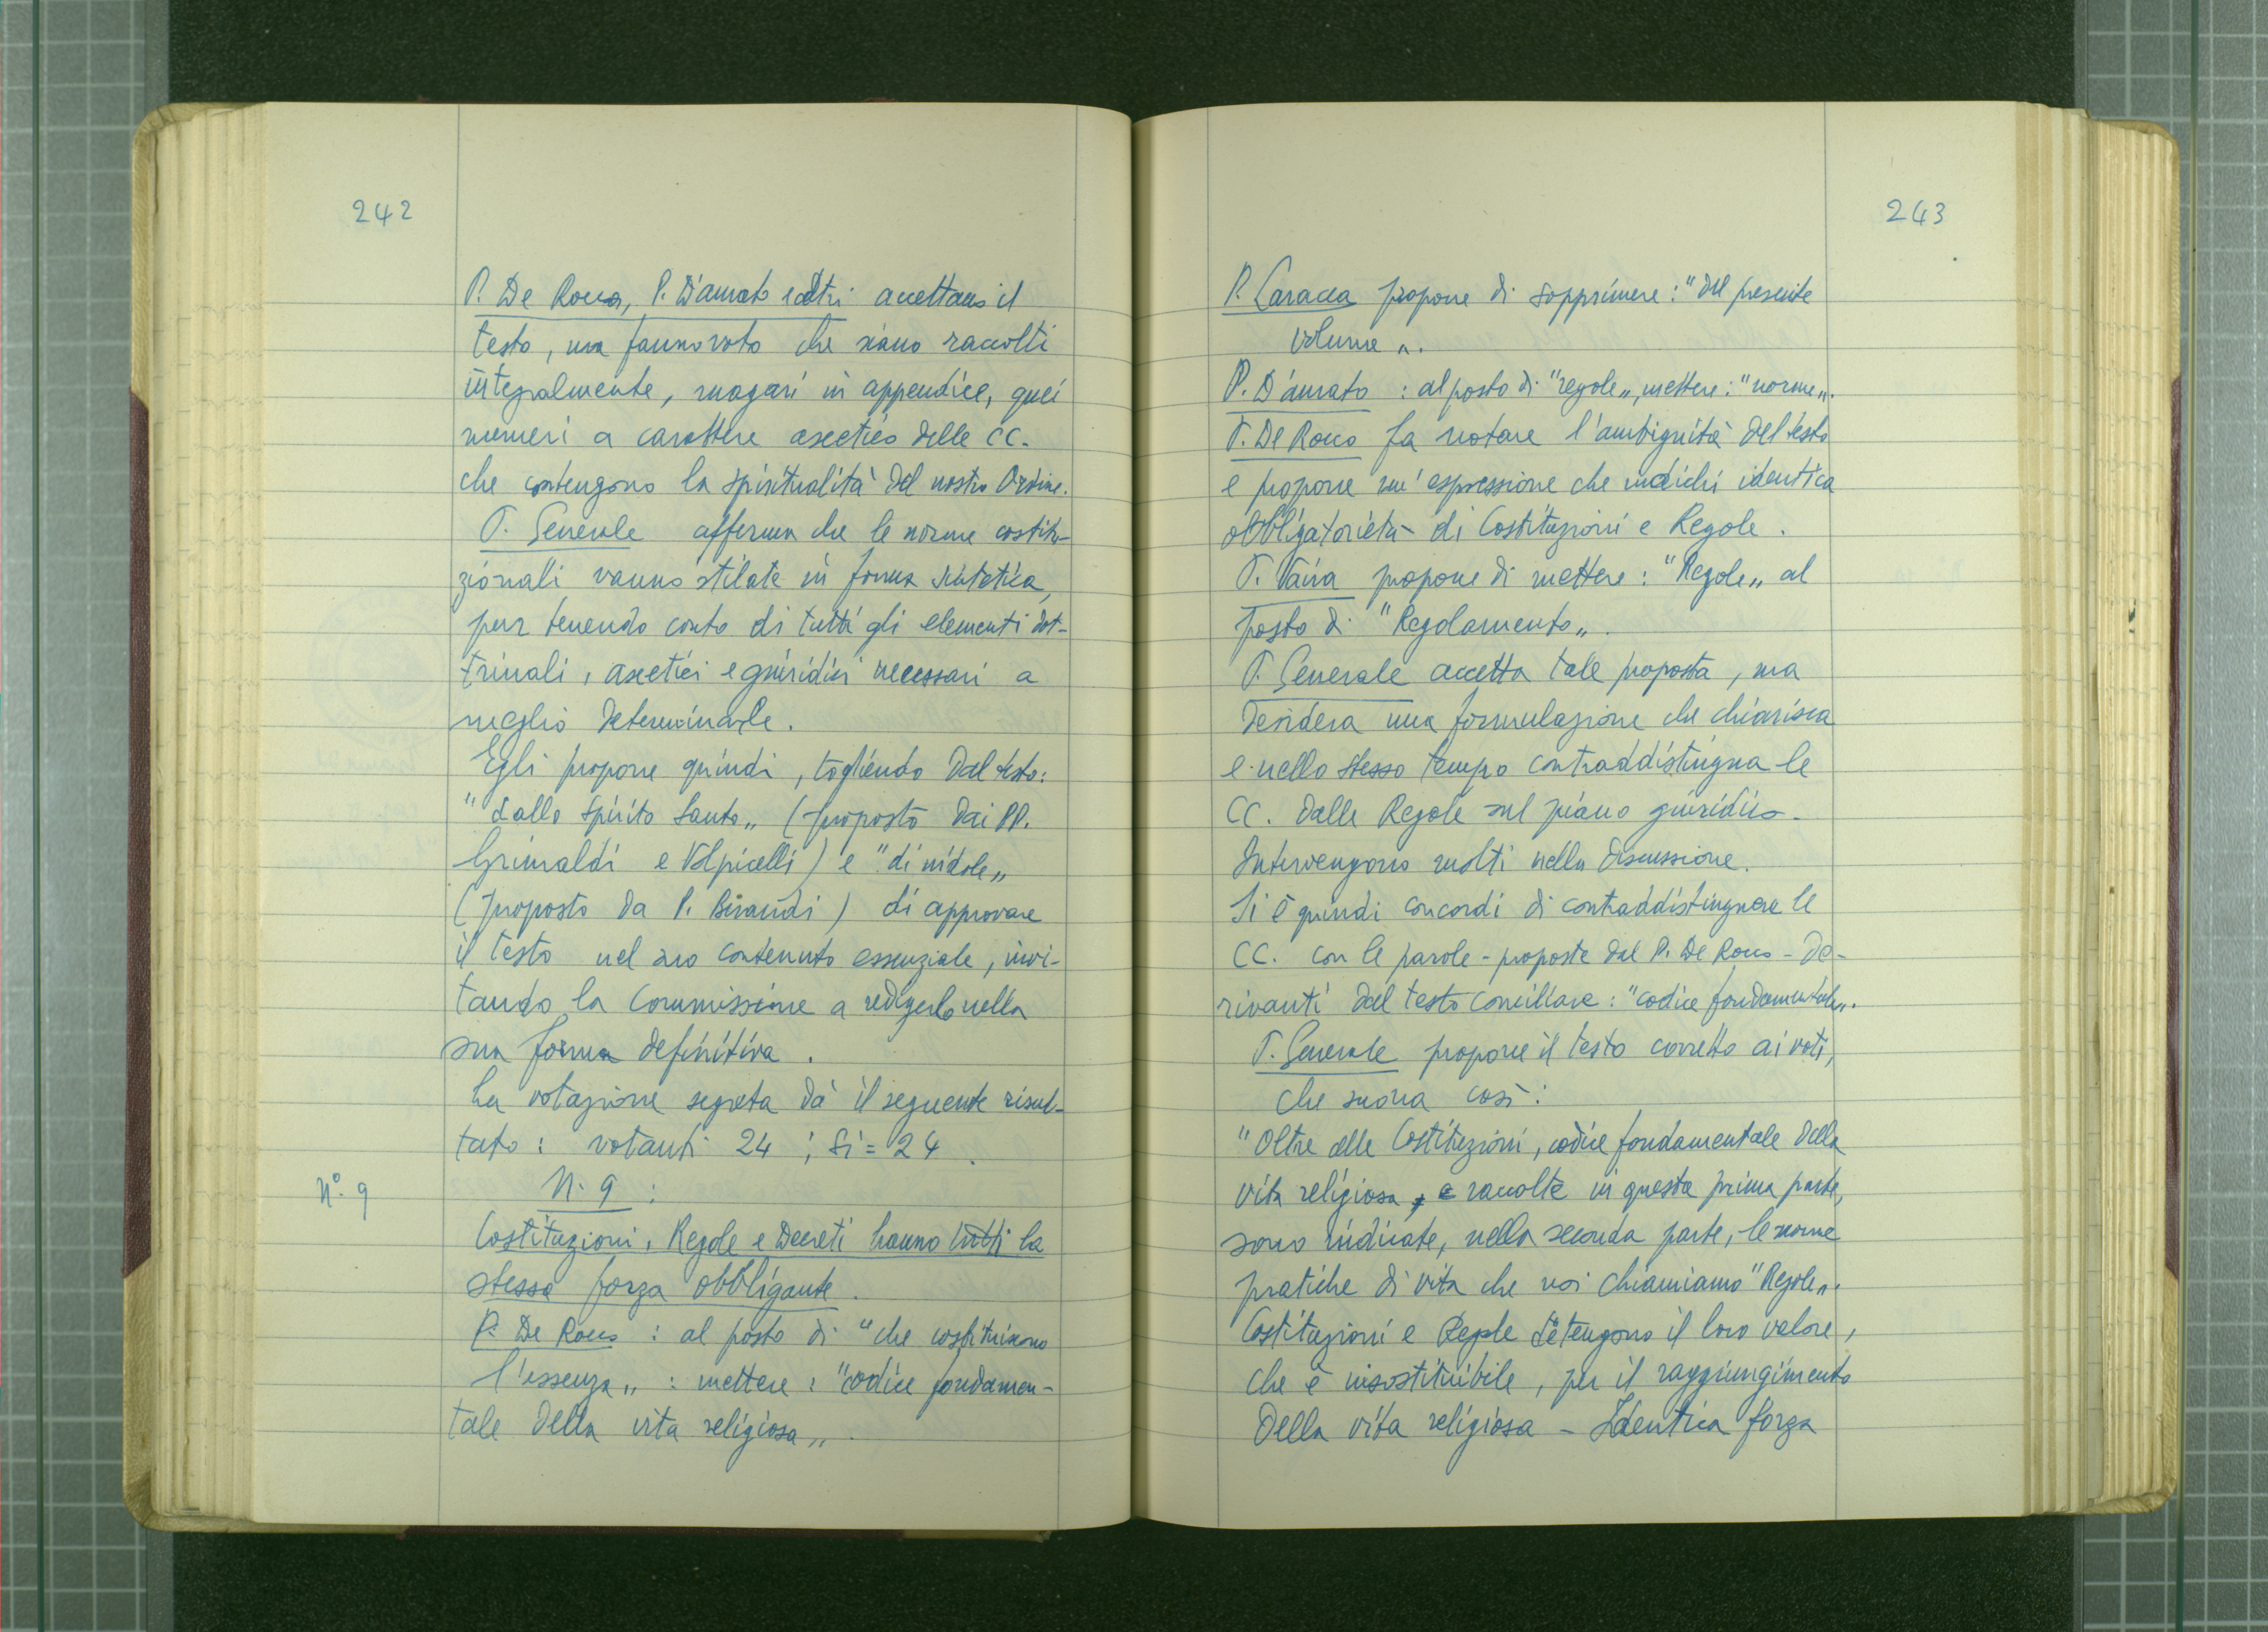 242
P. De Rocco, P. D'amato e altri accettano il
testo, ma fanno voto che siano raccolti
integralmente, magari in appendice, quei
numeri a carattere ascetico delle CC.
che contengono la spiritualità del nostro Ordine.
P. Generale afferma che le norme costitu-
zionali vanno stilate in forma sintetica,
pur tenendo conto di tutti gli elementi dot-
trinali, ascetici e giuridici necessari a
meglio determinarle.
Egli propone quindi, togliendo dal testo:
"dallo Spirito Santo„ (proposto dai PP.
Grimaldi e Volpicelli) e "di indole„
(proposto da P.) di approvare
il testo nel suo contenuto essenziale, invi-
tando la Commissione a redigerlo nella
sua forma definitiva.
La votazione segreta dà il seguente risul-
tato: votanti 24; Si = 24.
N.º 9
N. 9:
Costituzioni, Regole e Decreti hanno tutti la
stessa forza obbligante.
P. De Rocco: al posto di "che costituiscono
l'essenza„: mettere: "codice fondamen-
tale della vita religiosa„.
243
P. Caracca propone di sopprimere: "del presente
volume„.
P. D'amato: al posto di "regole„, mettere: "norme„.
P. De Rocco fa notare l'ambiguità del testo
e propone un'espressione che indichi identica
obbligatorietà di Costituzioni e Regole.
P. Vaira propone di mettere: "Regole„ al
posto di "Regolamento„.
P. Generale accetta tale proposta, ma
desidera una formulazione che chiarisca
e nello stesso tempo contraddistingua le
CC. dalle Regole sul piano giuridico.
Intervengono molti nella discussione.
Si è quindi concordi di contraddistinguere le
CC. con le parole - proposte dal P. De Rocco - de-
rivanti dal testo conciliare: "codice fondamentale„.
P. Generale propone il testo corretto ai voti,
che suona così:
"Oltre alle Costituzioni, codice fondamentale della
vita religiosa, e raccolte in questa prima parte,
sono indicate, nella seconda parte, le norme
pratiche di vita che noi chiamiamo "Regole„.
Costituzioni e Regole detengono il loro valore,
che è insostituibile, per il raggiungimento
della vita religiosa - Identica forza